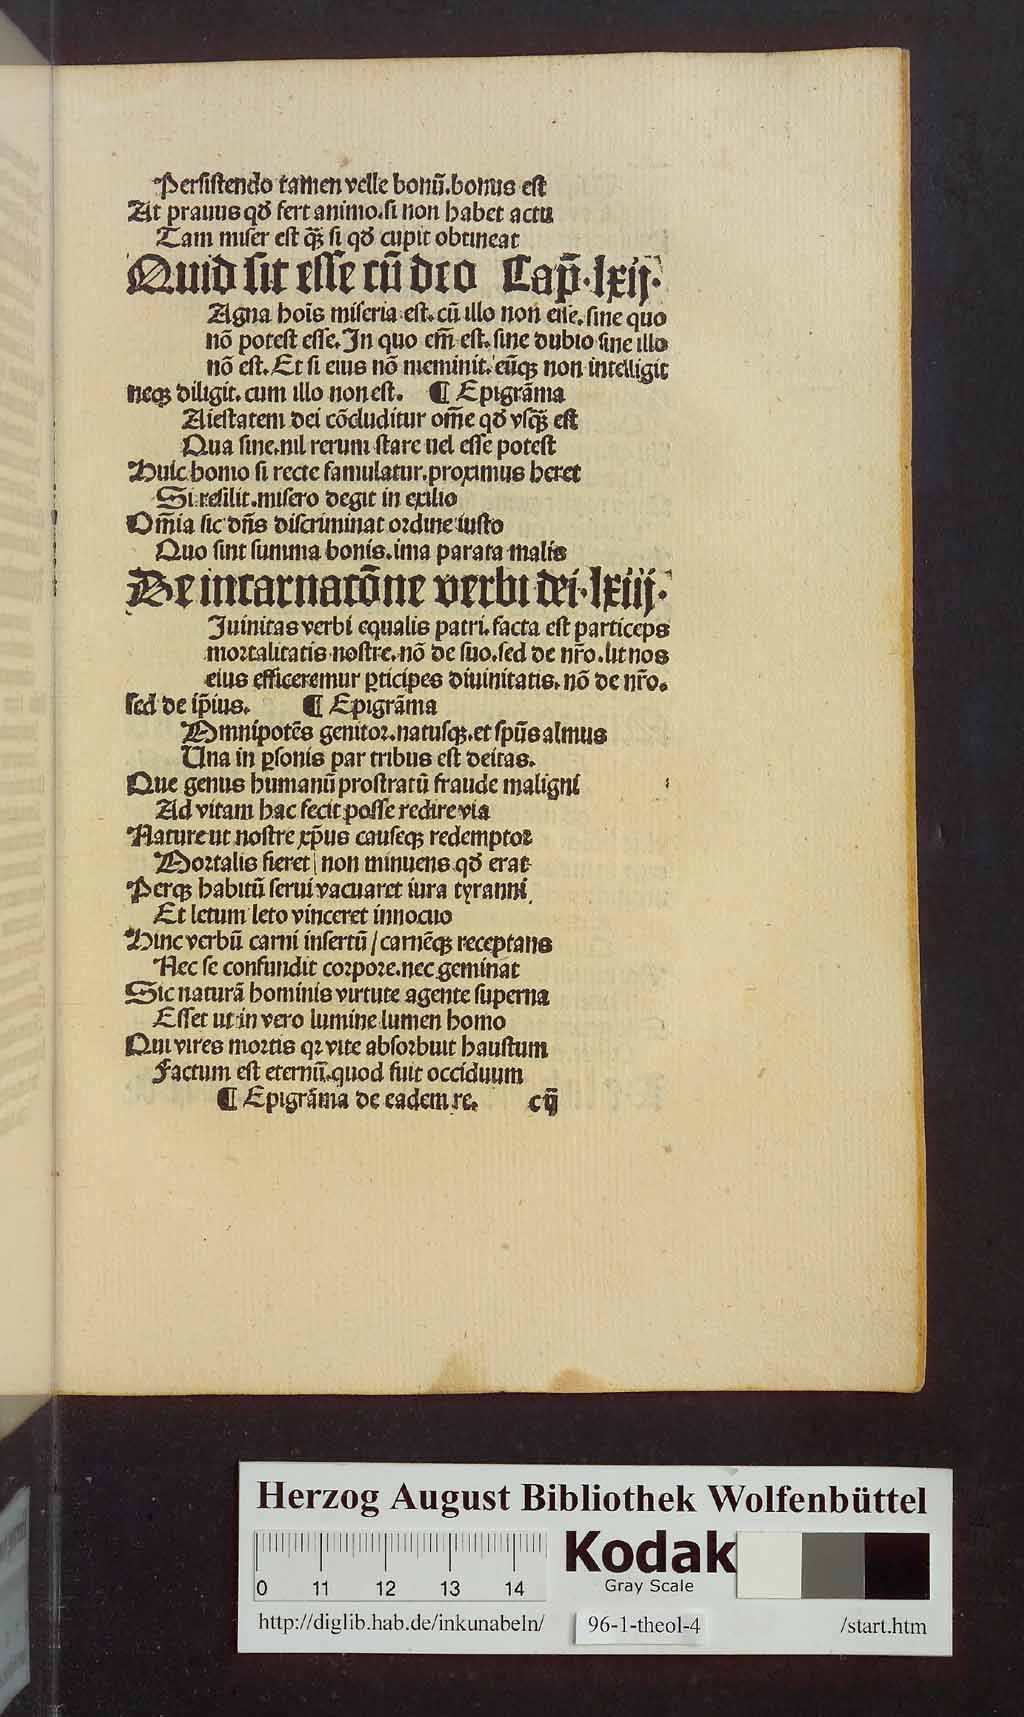 Persistendo tamen velle bonū.bonus est
At prauus qð fert animo.si non habet actu
Tam miser est q̃ꝫ si qð cupit obtineat
Quid sit esse cū deo Cap̃.lxij.
Agna hoīs miseria est.cū illo non esse.sine quo
nō potest esse.In quo em̄ est.sine dubio sine illo
nō est.Et si eius nō meminit.eūqꝫ non intelligit
neqꝫ diligit.cum illo non est. ¶ Epigrāma
Aiestatem dei cōcluditur om̄e qð vsq̃ꝫ est
Qua sine.nil rerum stare uel esse potest
Huic homo si recte famulatur.proximus heret
Si resilit.misero degit in exilio
Om̄ia sic dn̄s discriminat ordine iusto
Quo sint summa bonis.ima parata malis
De incarnatōne verbi dei.lxiij.
Iuinitas verbi equalis patri.facta est particeps
mortalitatis nostre.nō de suo.sed de nr̄o.ut nos
eius efficeremur ꝑticipes diuinitatis.nō de nr̄o.
sed de ip̄ius. ¶ Epigrāma
Omnipotēs genitor.natusqꝫ.et spūs almus
Una in ꝑsonis par tribus est deitas.
Que genus humanū prostratū fraude maligni
Ad vitam hac fecit posse redire via
Nature ut nostre xp̄us causeqꝫ redemptor
Mortalis fieret/ non minuens qð erat
Perqꝫ habitū serui vacuaret iura tyranni
Et letum leto vinceret innocuo
Hinc verbū carni insertū/carnēqꝫ receptans
Nec se confundit corpore.nec geminat
Sic naturā hominis virtute agente superna
Esset ut in vero lumine lumen homo
Qui vires mortis qꝛ vite absorbuit haustum
Factum est eternū.quod fuit occiduum
¶ Epigrāma de eadem re. c ij
Herzog August Bibliothek Wolfenbüttel
0 11 12 13 14
Kodak
Gray Scale
http://diglib.hab.de/inkunabeln/ 96-1-theol-4 /start.htm